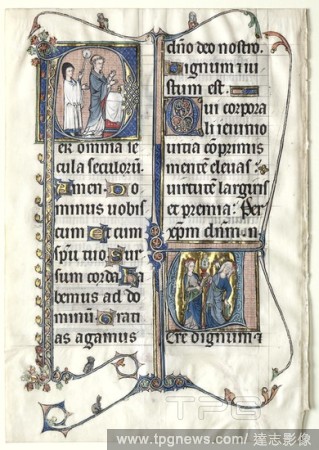 er omnia se
cula seculorū.
Amen. Do
minus uobis
cum Et cum
spū tuo Sur
sum corda ha
bemus ad do
minū Grati
as agamus
dño deo nostro.
Dignum ius
stum est.
Qui corpora
li ieiunio
uitia cōprimis
mentē eleuas.
uirtutē largiris
et premia: Per
xp̄m dnm n
ere dignum
TPG
www.tpgnews.com/ 達志影像